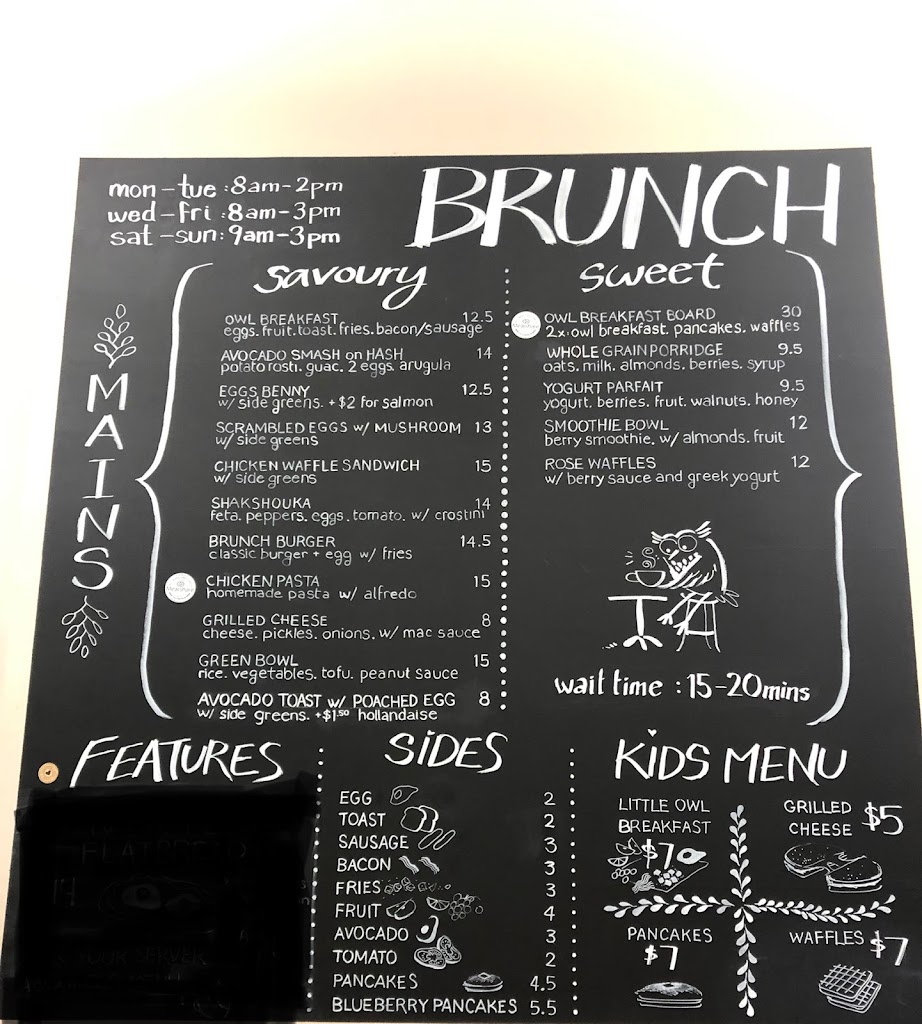 mon-tue: 8am-2pm
wed-fri: 8am-3pm
sat-sun: 9am-3pm
BRUNCH
MAINS
savoury
OWL BREAKFAST 12.5
eggs. fruit. toast. fries. bacon/sausage
AVOCADO SMASH on HASH 14
potato rosti. guac. 2 eggs. arugula
EGGS BENNY 12.5
w/ side greens. +$2 for salmon
SCRAMBLED EGGS w/ MUSHROOM 13
w/ side greens
CHICKEN WAFFLE SANDWICH 15
w/ side greens
SHAKSHOUKA 14
feta. peppers. eggs. tomato. w/ crostini
BRUNCH BURGER 14.5
classic burger + egg w/ fries
CHICKEN PASTA 15
homemade pasta w/ alfredo
GRILLED CHEESE 8
cheese. pickles. onions. w/ mac sauce
GREEN BOWL 15
rice. vegetables. tofu. peanut sauce
AVOCADO TOAST w/ POACHED EGG 8
w/ side greens. +$1.50 hollandaise
sweet
OWL BREAKFAST BOARD 30
2x owl breakfast. pancakes. waffles
WHOLE GRAIN PORRIDGE 9.5
oats. milk. almonds. berries. syrup
YOGURT PARFAIT 9.5
yogurt. berries. fruit. walnuts. honey
SMOOTHIE BOWL 12
berry smoothie. w/ almonds. fruit
ROSE WAFFLES 12
w/ berry sauce and greek yogurt
wait time : 15-20mins
FEATURES
FLATBREAD
14
YOUR SERVER
SIDES
EGG 2
TOAST 2
SAUSAGE 3
BACON 3
FRIES 3
FRUIT 4
AVOCADO 3
TOMATO 2
PANCAKES 4.5
BLUEBERRY PANCAKES 5.5
KIDS MENU
LITTLE OWL
BREAKFAST
$7
GRILLED
CHEESE $5
PANCAKES
$7
WAFFLES $7